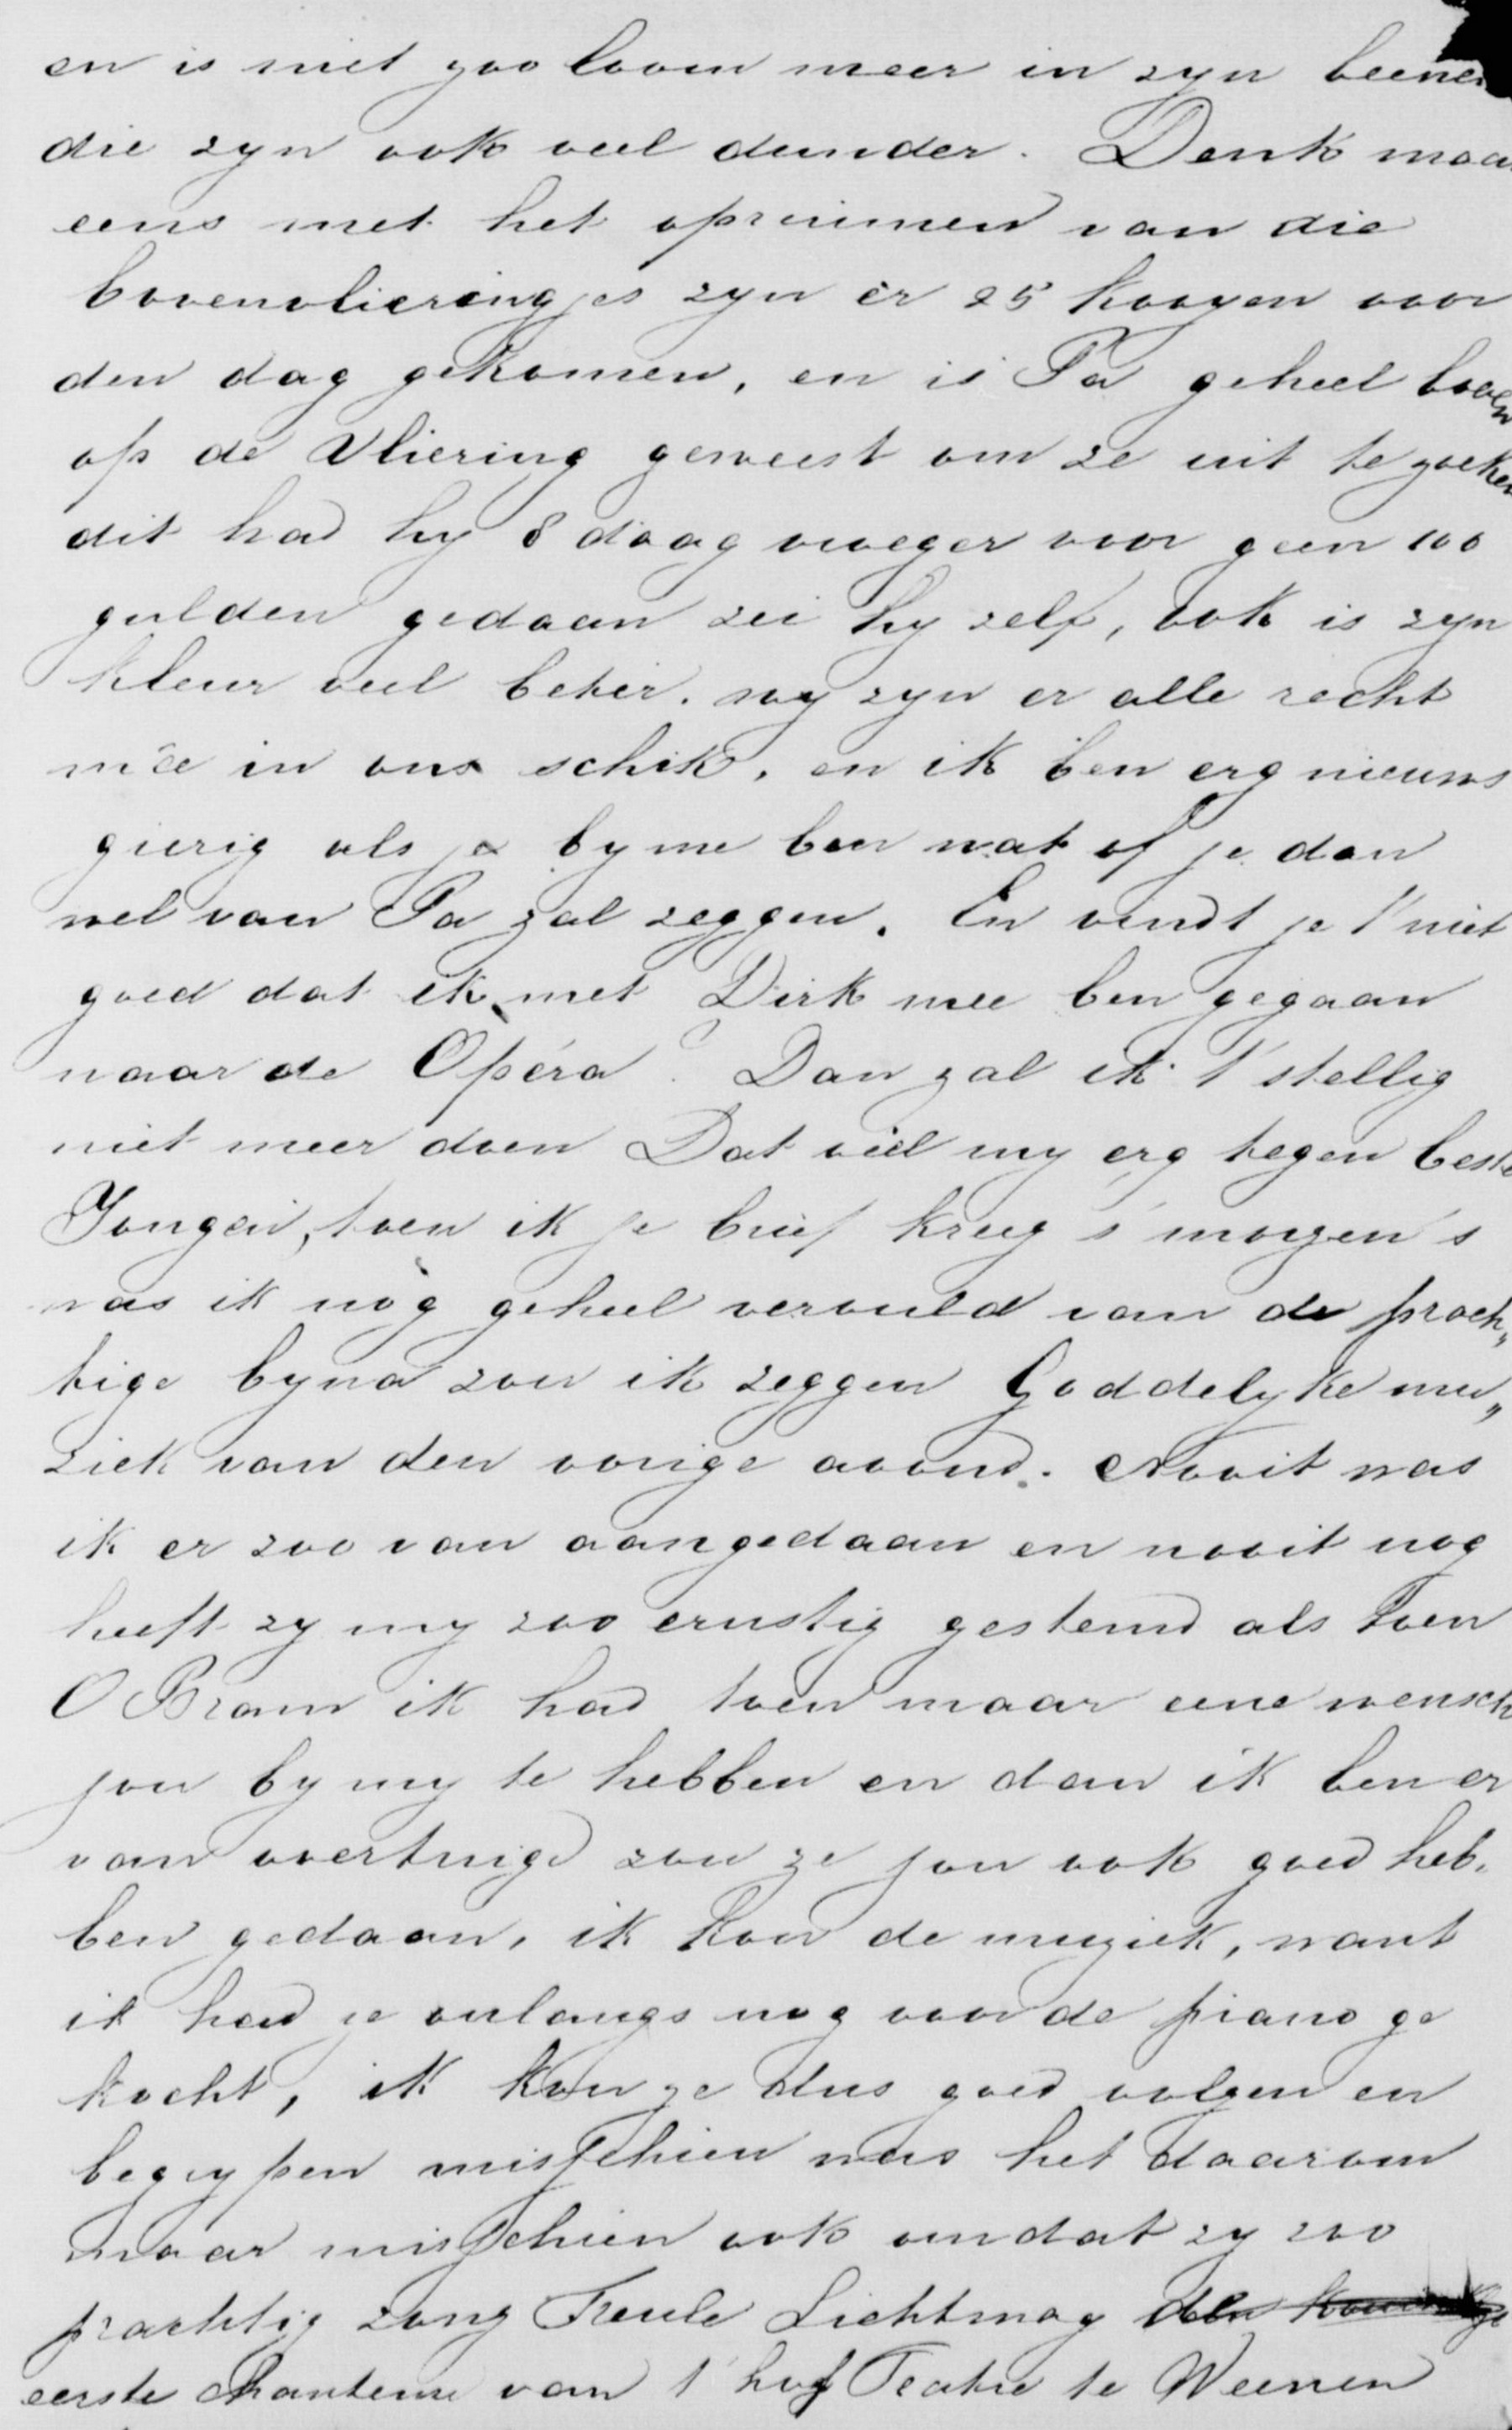 en is niet zoo loom meer in zyn beenen
die zyn ook veel dunder. Denk maar
eens met het opruimen van die
bovenvlieringjes zyn er 25 kooyen voor
den dag gekomen, en is Pa geheel boven
op de Vliering geweest om ze uit te zoeken
dit had hy 8 daag vroeger voor geen 100
gulden gedaan zei hy zelf, ook is zyn
kleur veel beter. wy zyn er alle recht
mêe in ons schik, en ik ben erg nieuws
gierig als je by me ben wat of je dan
wel van Pa zal zeggen. En vindt je 't niet
goed dat ik met Dirk mee ben gegaan
naar de Opéra? Dan zal ik 't stellig
niet meer doen Dat viel my erg tegen beste
Jongen, toen ik je brief kreeg s'morgen s
was ik nòg geheel vervuld van de prach„
tige byna zou ik zeggen Goddelyke mu„
ziek van den vorige avond. Nooit was
ik er zoo van aangedaan en nooit nog
heeft zy my zoo ernstig gestemd als toen
O Bram ik had toen maar eene wensch
jou by my te hebben en dan ik ben er
van overtuigd zou ze jou ook goed heb„
ben gedaan, ik kon de muziek, want
ik had ze onlangs nog voor de piano ge
kocht, ik kon ze dus goed volgen en
begrypen misschien was het daarom
maar misschien ook omdat zy zoo
prachtig zong Freule Lichtmay
eerste Chanteuse van 't hof Teatre te Weenen